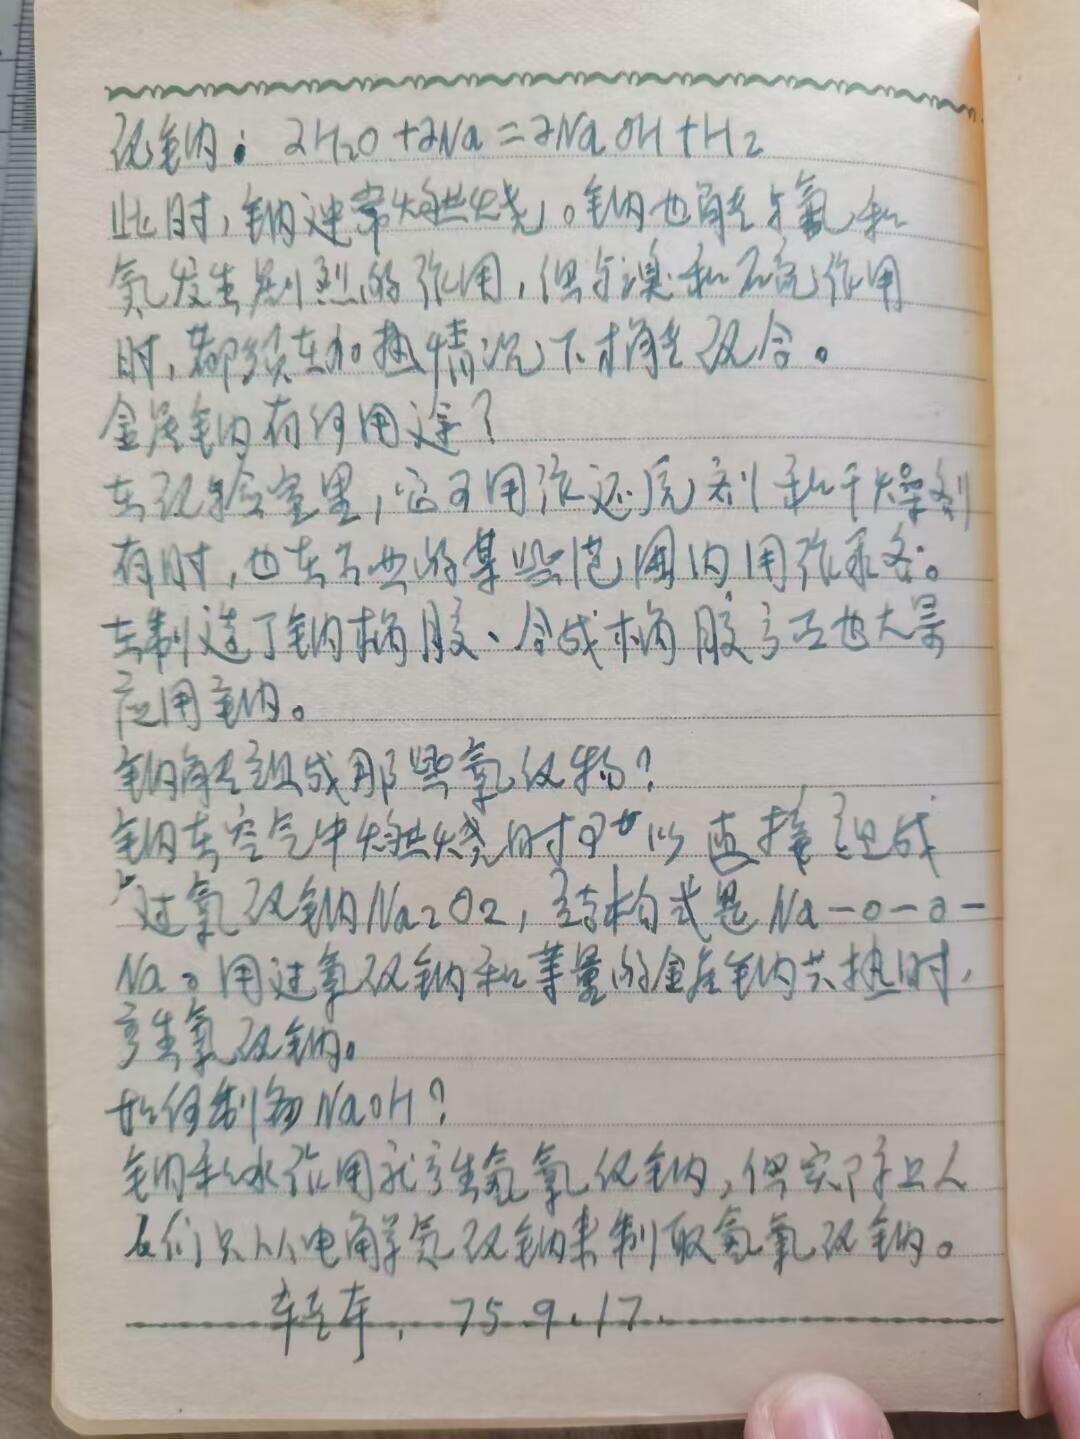 化钠：2H₂O+2Na=2NaOH+H₂
此时，钠通常燃烧。钠也能与氟和
氯发生剧烈的作用，但与溴和硫作用
时，都须在加热情况下才能化合。
金属钠有何用途？
在化验室里，它可用作还原剂和干燥剂
有时，也在的某些范围内用作
在制造丁钠橡胶、合成橡胶产工也大量
应用钠。
钠能组成那些氧化物？
钠在空气中燃烧时可以直接组成
过氧化钠Na₂O₂，结构式是Na-O-O-
Na。用过氧化钠和等量的金属钠共热时，
产生氧化钠。
如何制备NaOH？
钠和水作用就产生氢氧化钠，但实际上人
人们只从电解氯化钠来制取氢氧化钠。
75.9.17.